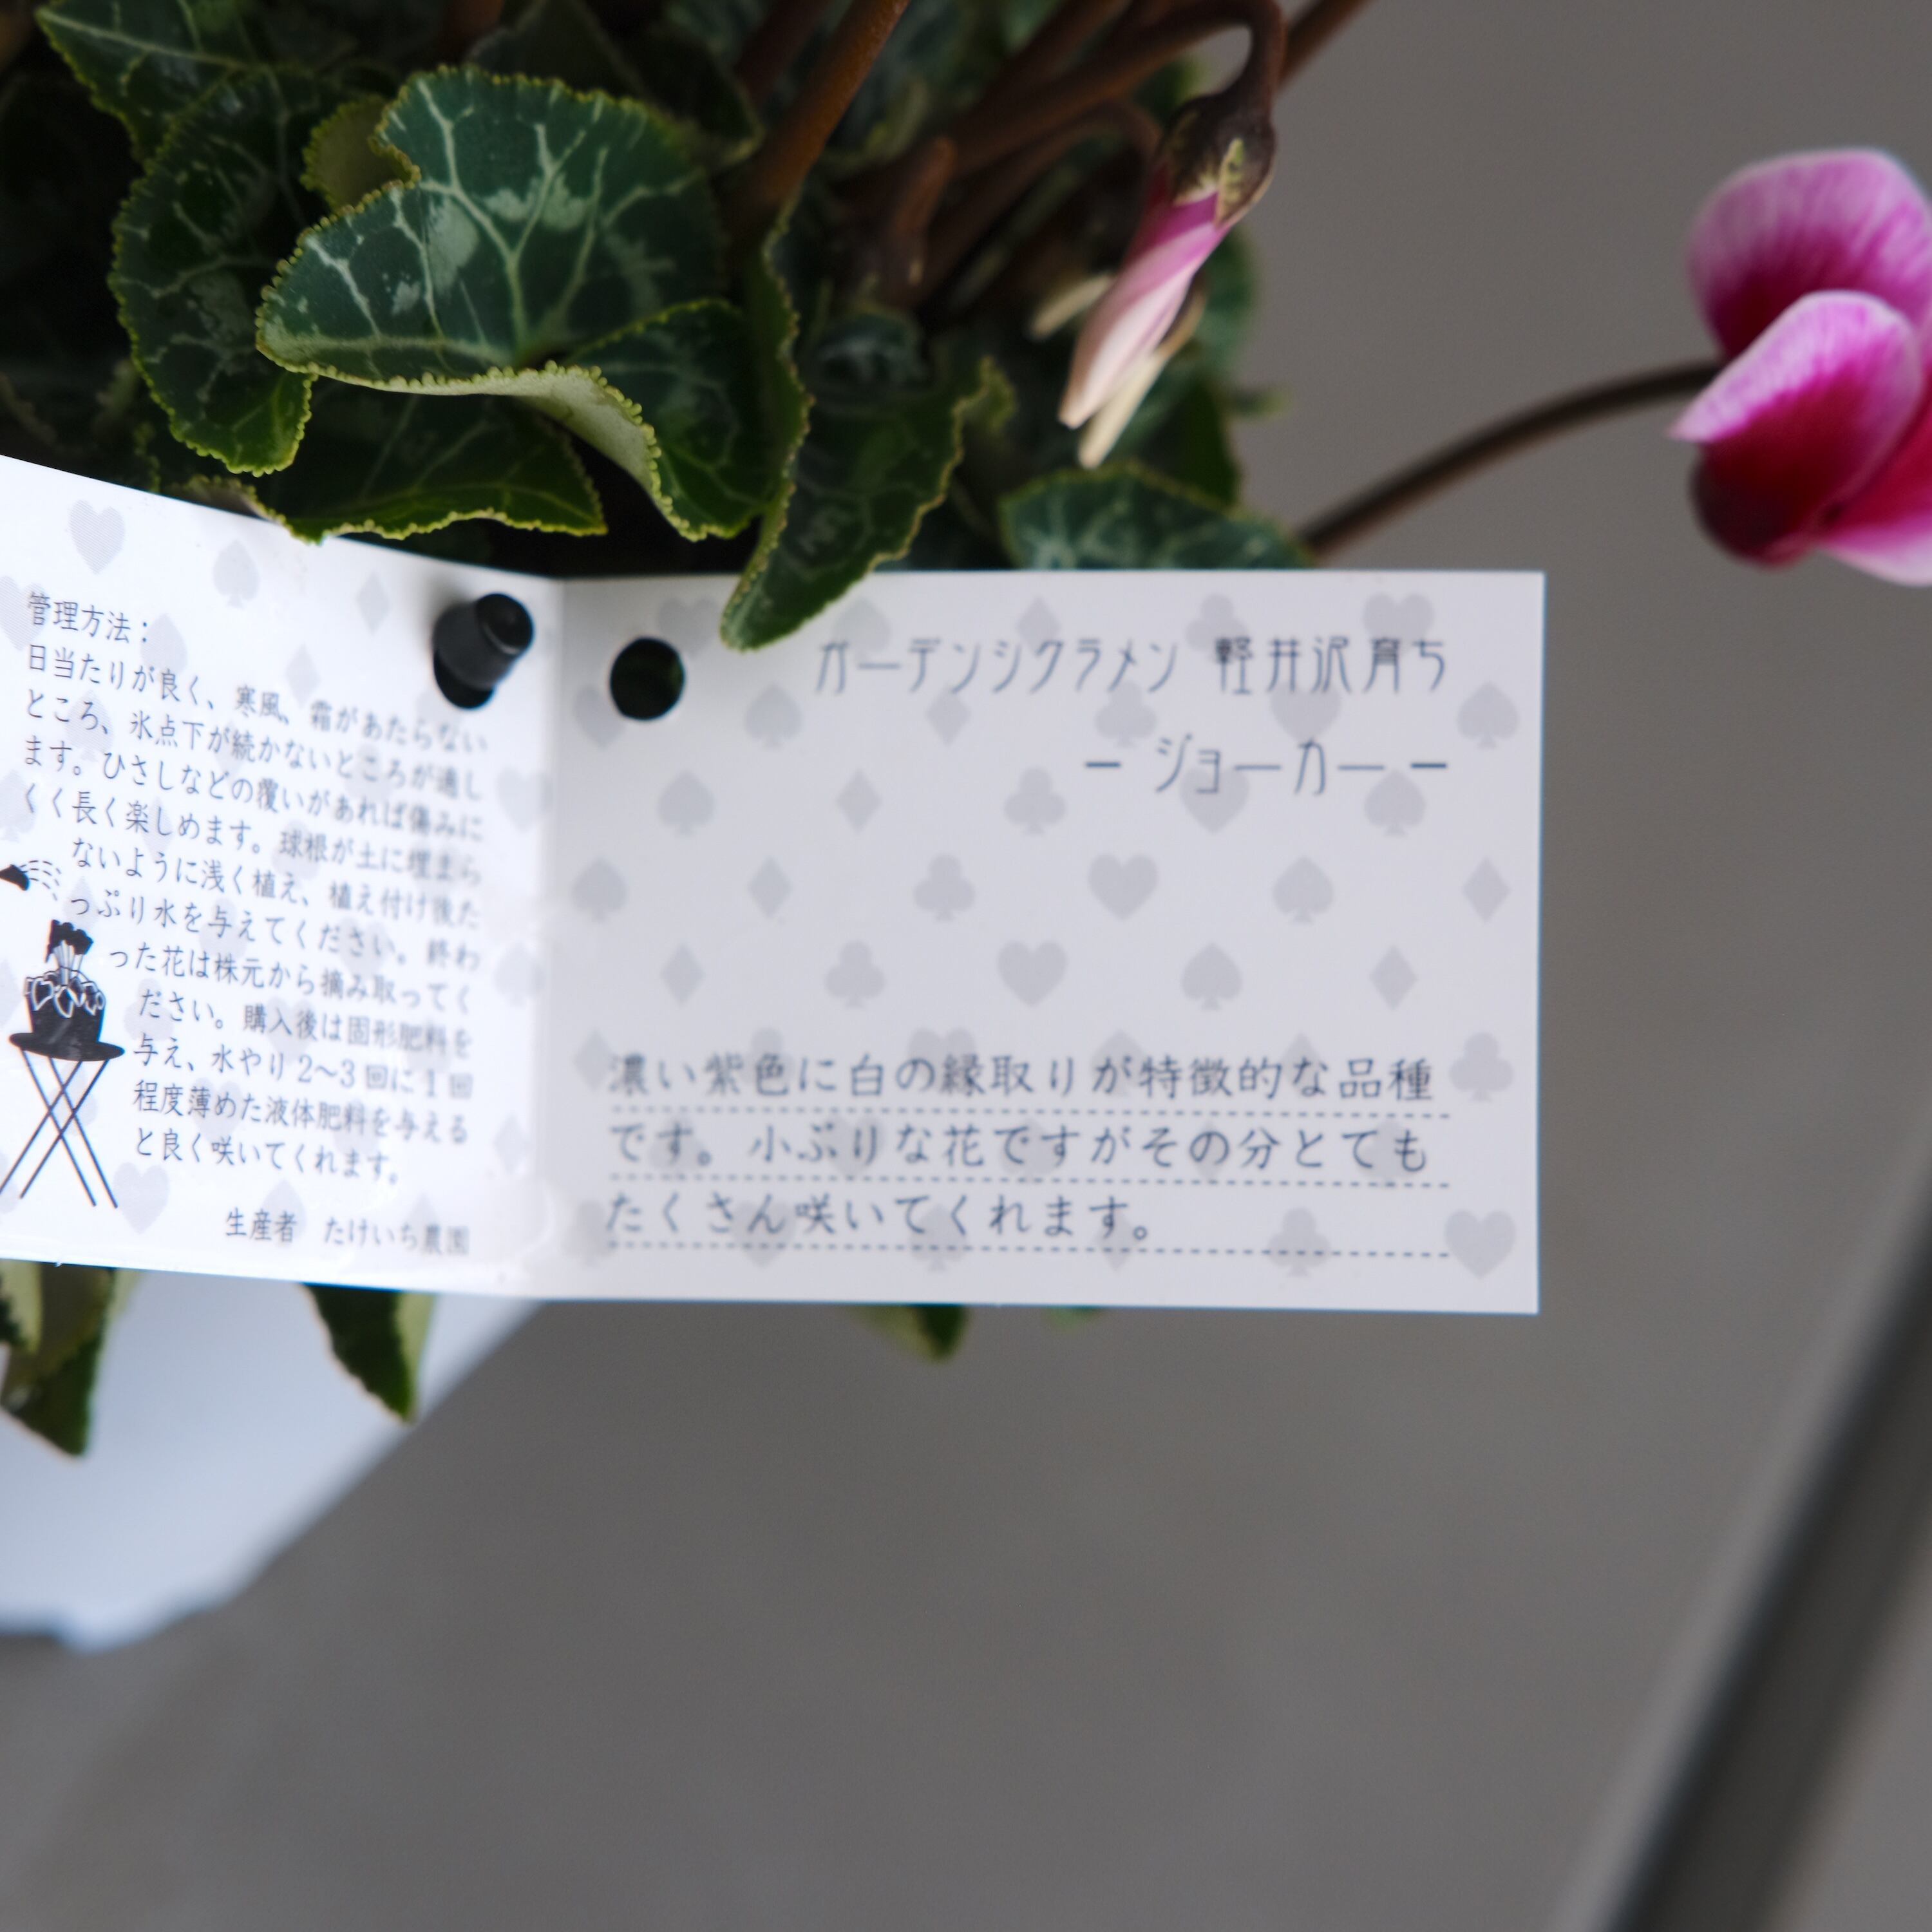 管理方法：
日当たりが良く、寒風、霜があたらない
ところ、氷点下が続かないところが適し
ます。ひさしなどの覆いがあれば傷みに
くく長く楽しめます。球根が土に埋まら
ないように浅く植え、植え付け後た
っぷり水を与えてください。終わ
った花は株元から摘み取ってく
ださい。購入後は固形肥料を
与え、水やり2～3回に1回
程度薄めた液体肥料を与える
と良く咲いてくれます。
生産者 たけいち農園
ガーデンシクラメン 軽井沢育ち
ー ジョーカー ー
濃い紫色に白の縁取りが特徴的な品種
です。小ぶりな花ですがその分とても
たくさん咲いてくれます。